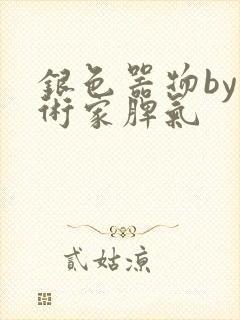 銀色器物by
術家脾氣
貳姑涼